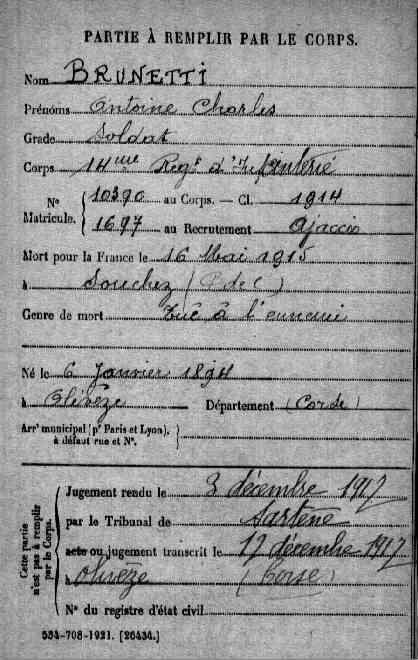 PARTIE À REMPLIR PAR LE CORPS.
Nom BRUNETTI
Prénoms Antoine Charles
Grade Soldat
Corps 14me Regt d'Infanterie
N° Matricule. { 10390 au Corps. — Cl. 1914
1697 au Recrutement Ajaccio
Mort pour la France le 16 Mai 1915
à Souchez (P de C)
Genre de mort Tué à l'ennemi
Né le 6 Janvier 1894
à Olivèze Département (Corse)
Arr' municipal (p' Paris et Lyon), à défaut rue et N°. }
Cette partie n'est pas à remplir par le Corps.
Jugement rendu le 3 décembre 1917
par le Tribunal de Sartène
acte ou jugement transcrit le 17 décembre 1917
à Olivèze (Corse)
N° du registre d'état civil
534-708-1921. [26434.]